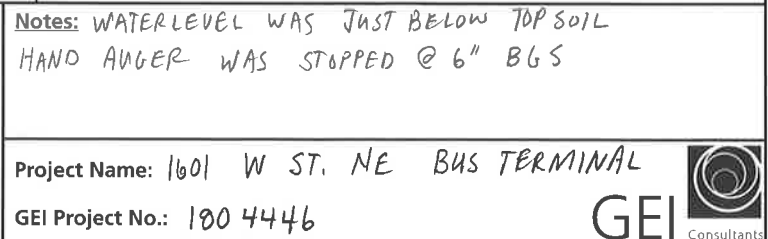 Notes: WATER LEVEL WAS JUST BELOW TOP SOIL
HAND AUGER WAS STOPPED @ 6" BGS
Project Name: 1601 W ST. NE BUS TERMINAL
GEI Project No.: 1804446
GEI Consultants